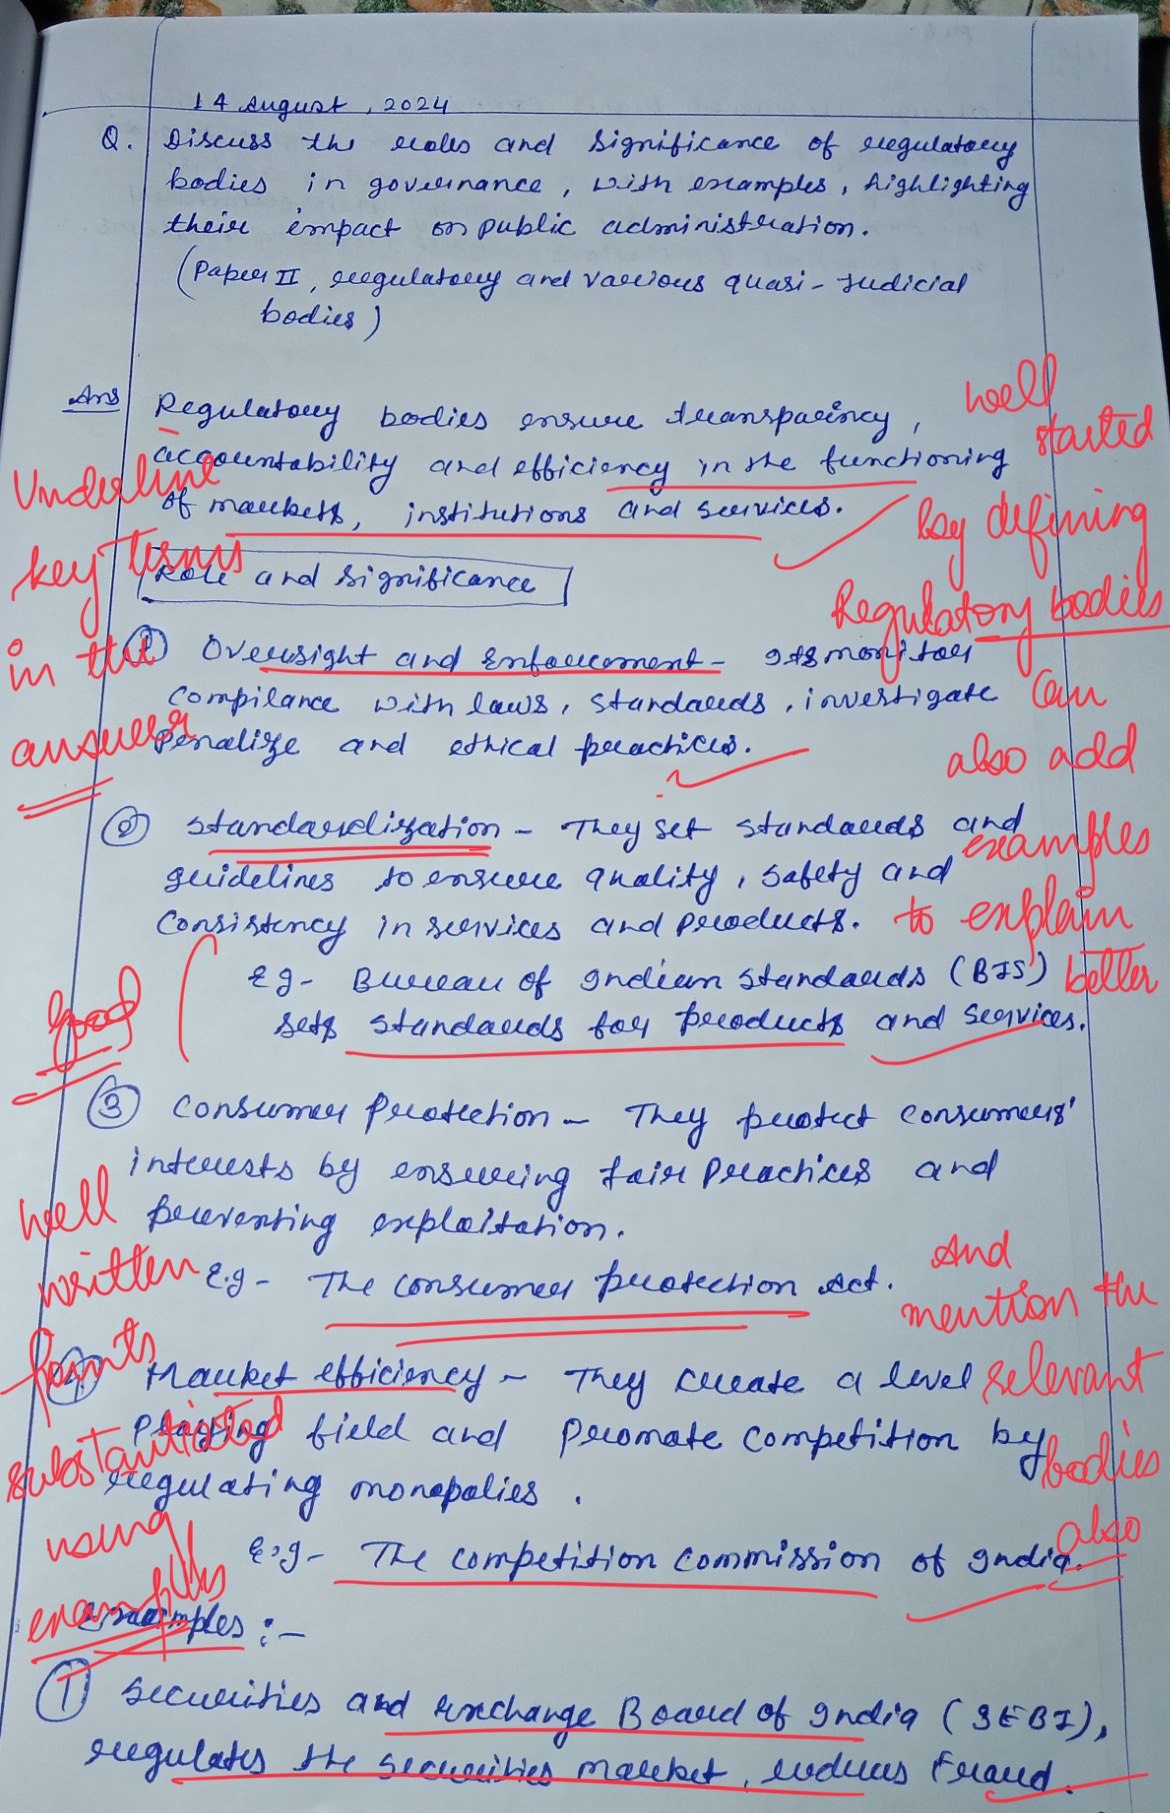 14 August, 2024
Q. Discuss the roles and significance of regulatory
bodies in governance, with examples, highlighting
their impact on public administration.
(Paper II, regulatory and various quasi-Judicial
bodies)
Ans Regulatory bodies ensure transparency,
accountability and efficiency in the functioning
of markets, institutions and services.
well
started
by defining
Regulatory bodies
Underline
key terms
in the
answer
Role and Significance
① Oversight and Enforcement - monitor
compilance with laws, standards, investigate
penalize and ethical practices.
Can
also add
examples
to explain
better
② Standardization - They set standards and
guidelines to ensure quality, safety and
consistency in services and products.
Eg- Bureau of Indian Standards (BIS)
sets standards for products and services.
Good
③ Consumer Protection - They protect consumers'
interests by ensuring fair practices and
preventing exploitation.
E.g- The consumer protection Act.
well
written
points
substantiated
using
examples
And
mention the
relevant
bodies
also
④ Market efficiency - They create a level
playing field and promote competition by
regulating monopolies.
E.g- The competition commission of India.
Examples :-
① Securities and Exchange Board of India (SEBI),
regulates the securities market, reduces Fraud.